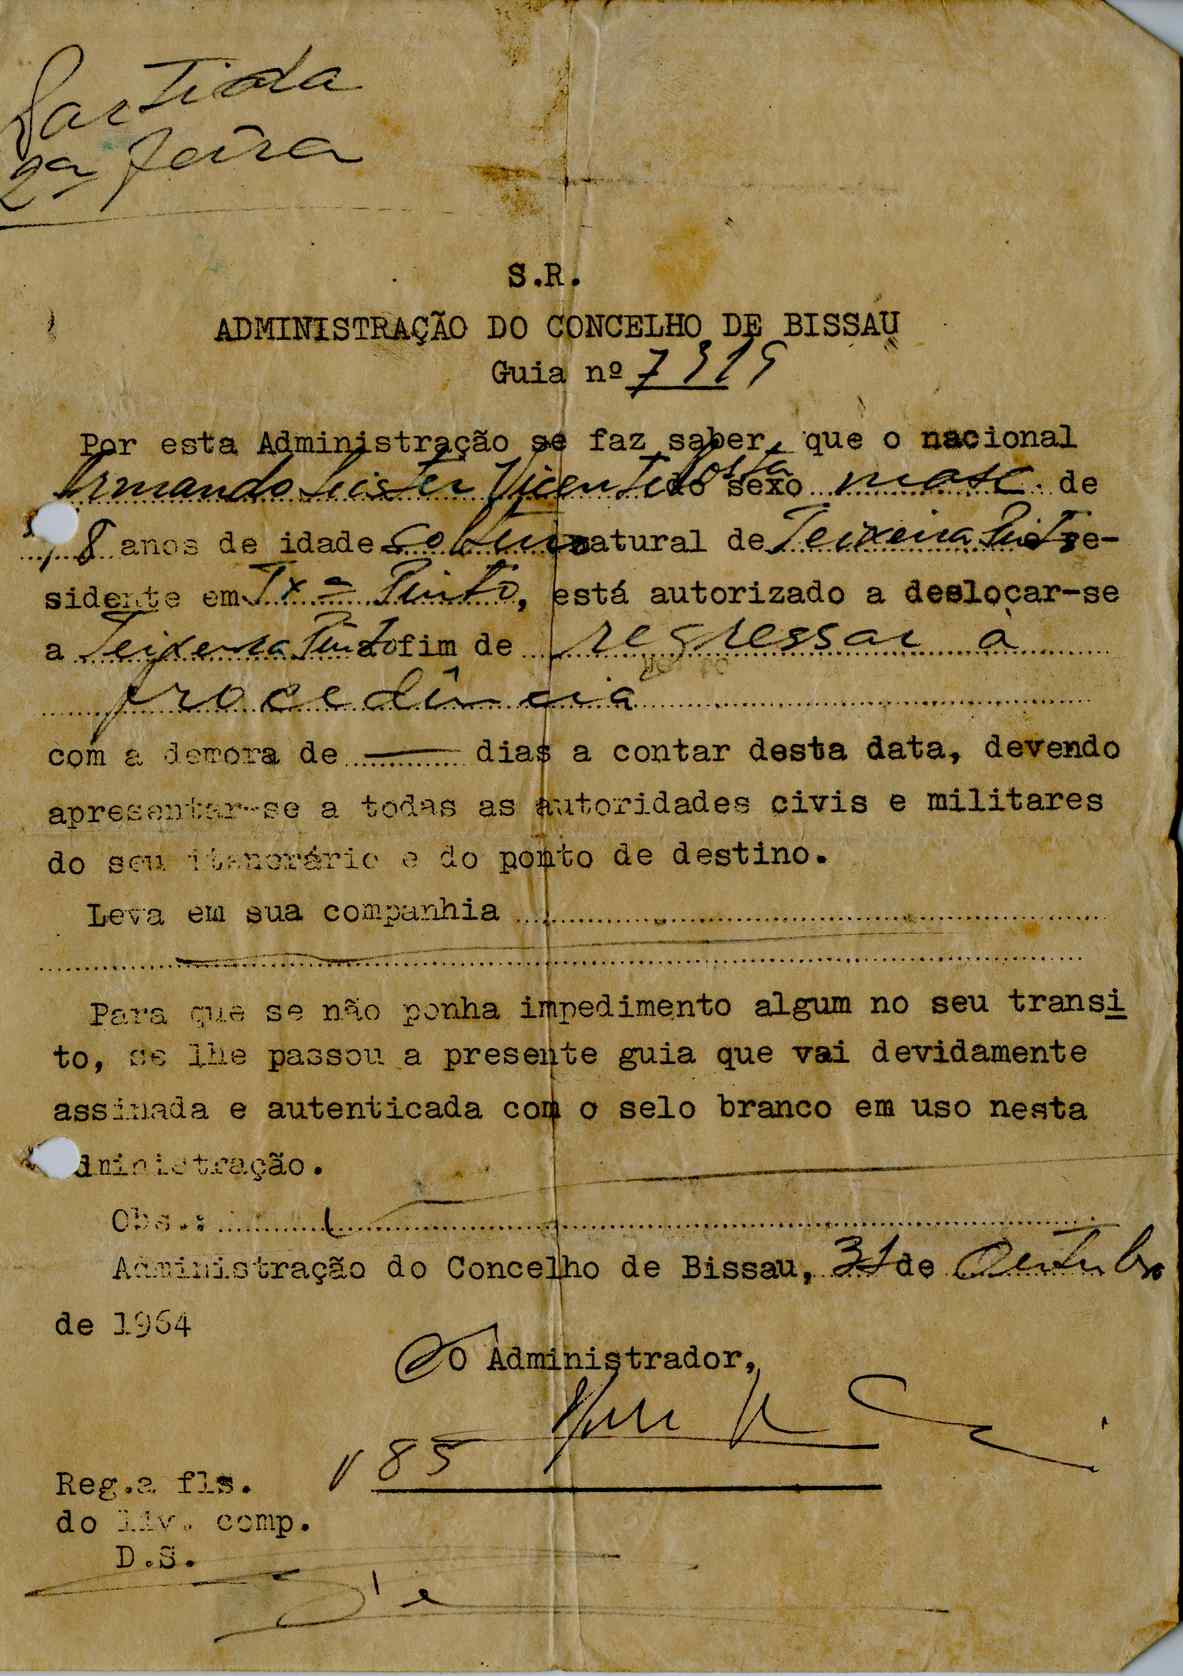 Partida
2ª feira
S.R.
ADMINISTRAÇÃO DO CONCELHO DE BISSAU
Guia nº 7919
Por esta Administração se faz saber, que o nacional
Armando Vicente Costa do sexo masc. de
18 anos de idade natural de Teixeira Pinto re-
sidente em Txª Pinto, está autorizado a deslocar-se
a Teixeira Pinto a fim de regressar à
procedência
com a demora de —— dias a contar desta data, devendo
apresentar-se a todas as autoridades civis e militares
do seu itenerário e do ponto de destino.
Leva em sua companhia
Para que se não ponha impedimento algum no seu transi
to, se lhe passou a presente guia que vai devidamente
assinada e autenticada com o selo branco em uso nesta
dministração.
Obs.:
Administração do Concelho de Bissau, 31 de Outubro
de 1964
O Administrador,
185
Reg.a fls.
do liv. comp.
D.S.